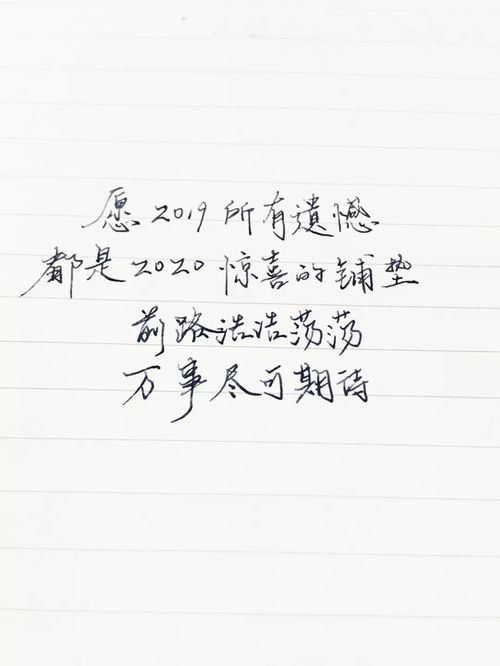 愿2019所有遺憾
都是2020惊喜的铺垫
前路浩浩荡荡
万事尽可期待